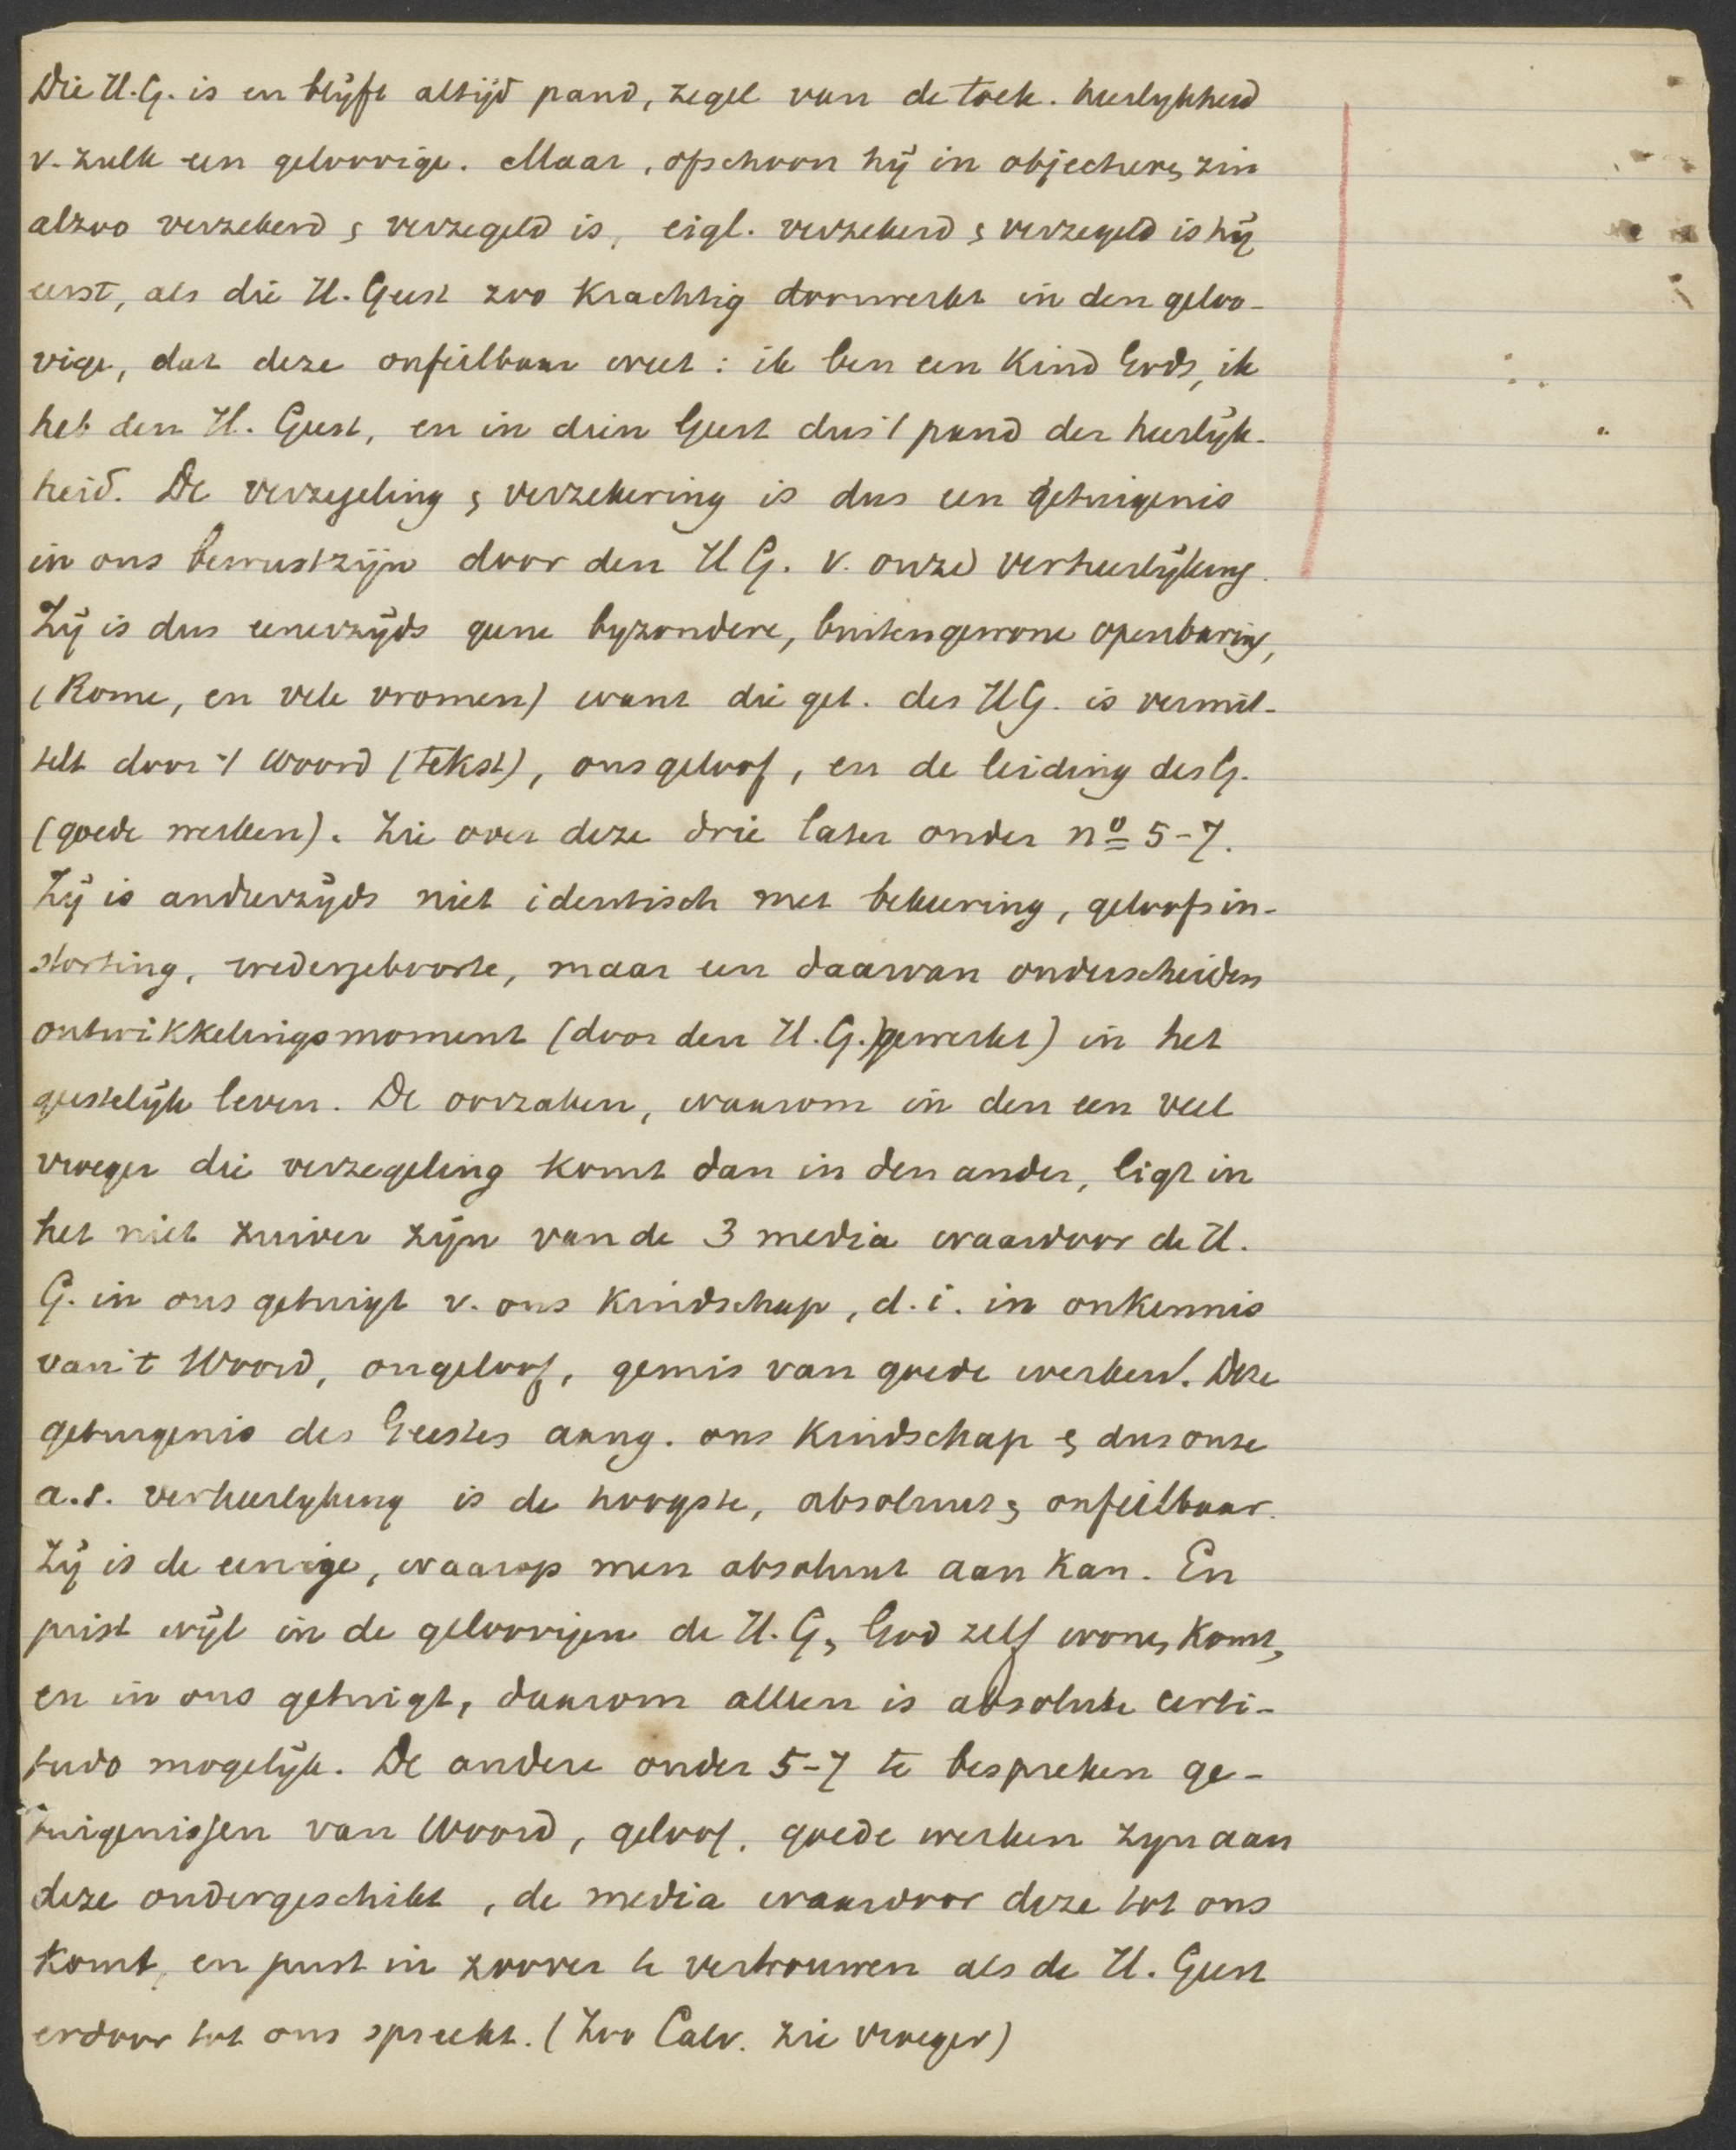 Die H.G. is en blijft altijd pand, zegel van de toek. heerlijkheid
v. zulk een geloovige. Maar, ofschoon hij in objectieve, zin
alzoo verzekerd & verzegeld is, eigl. verzekerd & verzegeld is hij
eerst, als die H. Geest zoo krachtig doorwerkt in den geloo-
vige, dat deze onfeilbaar weet: ik ben een Kind Gods, ik
heb den H. Geest, en in dien Geest dus 't pand der heerlijk-
heid. De verzegeling & verzekering is dus een getuigenis
in ons bewustzijn door den H G. v. onze verheerlijking.
Zij is dus eenerzijds geene byzondere, buitengewone openbaring,
(Rome, en vele vromen) want die get. des H G. is vermit-
telt door 't Woord (tekst), ons geloof, en de leiding des G.
(goede werken). Zie over deze drie later onder no 5-7.
Zij is anderzijds niet identisch met bekeering, geloofsin-
storting, wedergeboorte, maar een daarvan onderscheiden
ontwikkelingsmoment (door den H.G.) gewerkt) in het
geestelijk leven. De oorzaken, waarom in den een veel
vroeger die verzegeling komt dan in den ander, ligt in
het niet zuiver zijn van de 3 media waardoor de H.
G. in ons getuigt v. ons Kindschap, d.i. in onkennis
van 't Woord, ongeloof, gemis van goede werken. Deze
getuigenis des Geestes aang. ons Kindschap & dus onze
a.s. verheerlyking is de hoogste, absoluut & onfeilbaar.
Zij is de eenige, waarop men absoluut aan kan. En
juist wijl in de geloovigen de H.G., God zelf woont, komt,
en in ons getuigt, daarom alleen is absolute certi-
tudo mogelijk. De andere onder 5-7 te bespreken ge-
tuigenissen van Woord, geloof, goede werken zyn aan
deze ondergeschikt, de media waardoor deze tot ons
komt, en juist in zoover te vertrouwen als de H. Geest
erdoor tot ons spreekt. (Zoo Calv. zie vroeger)